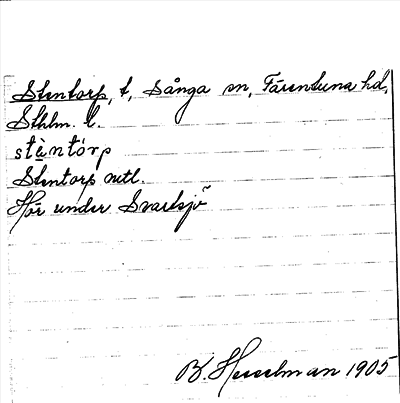 Stentorp, t, Sånga sn, Färentuna hd,
Sthlm. l.
stèntórp
Stentorp uttl.
Hör under Svartsjö
B. Hesselman 1905